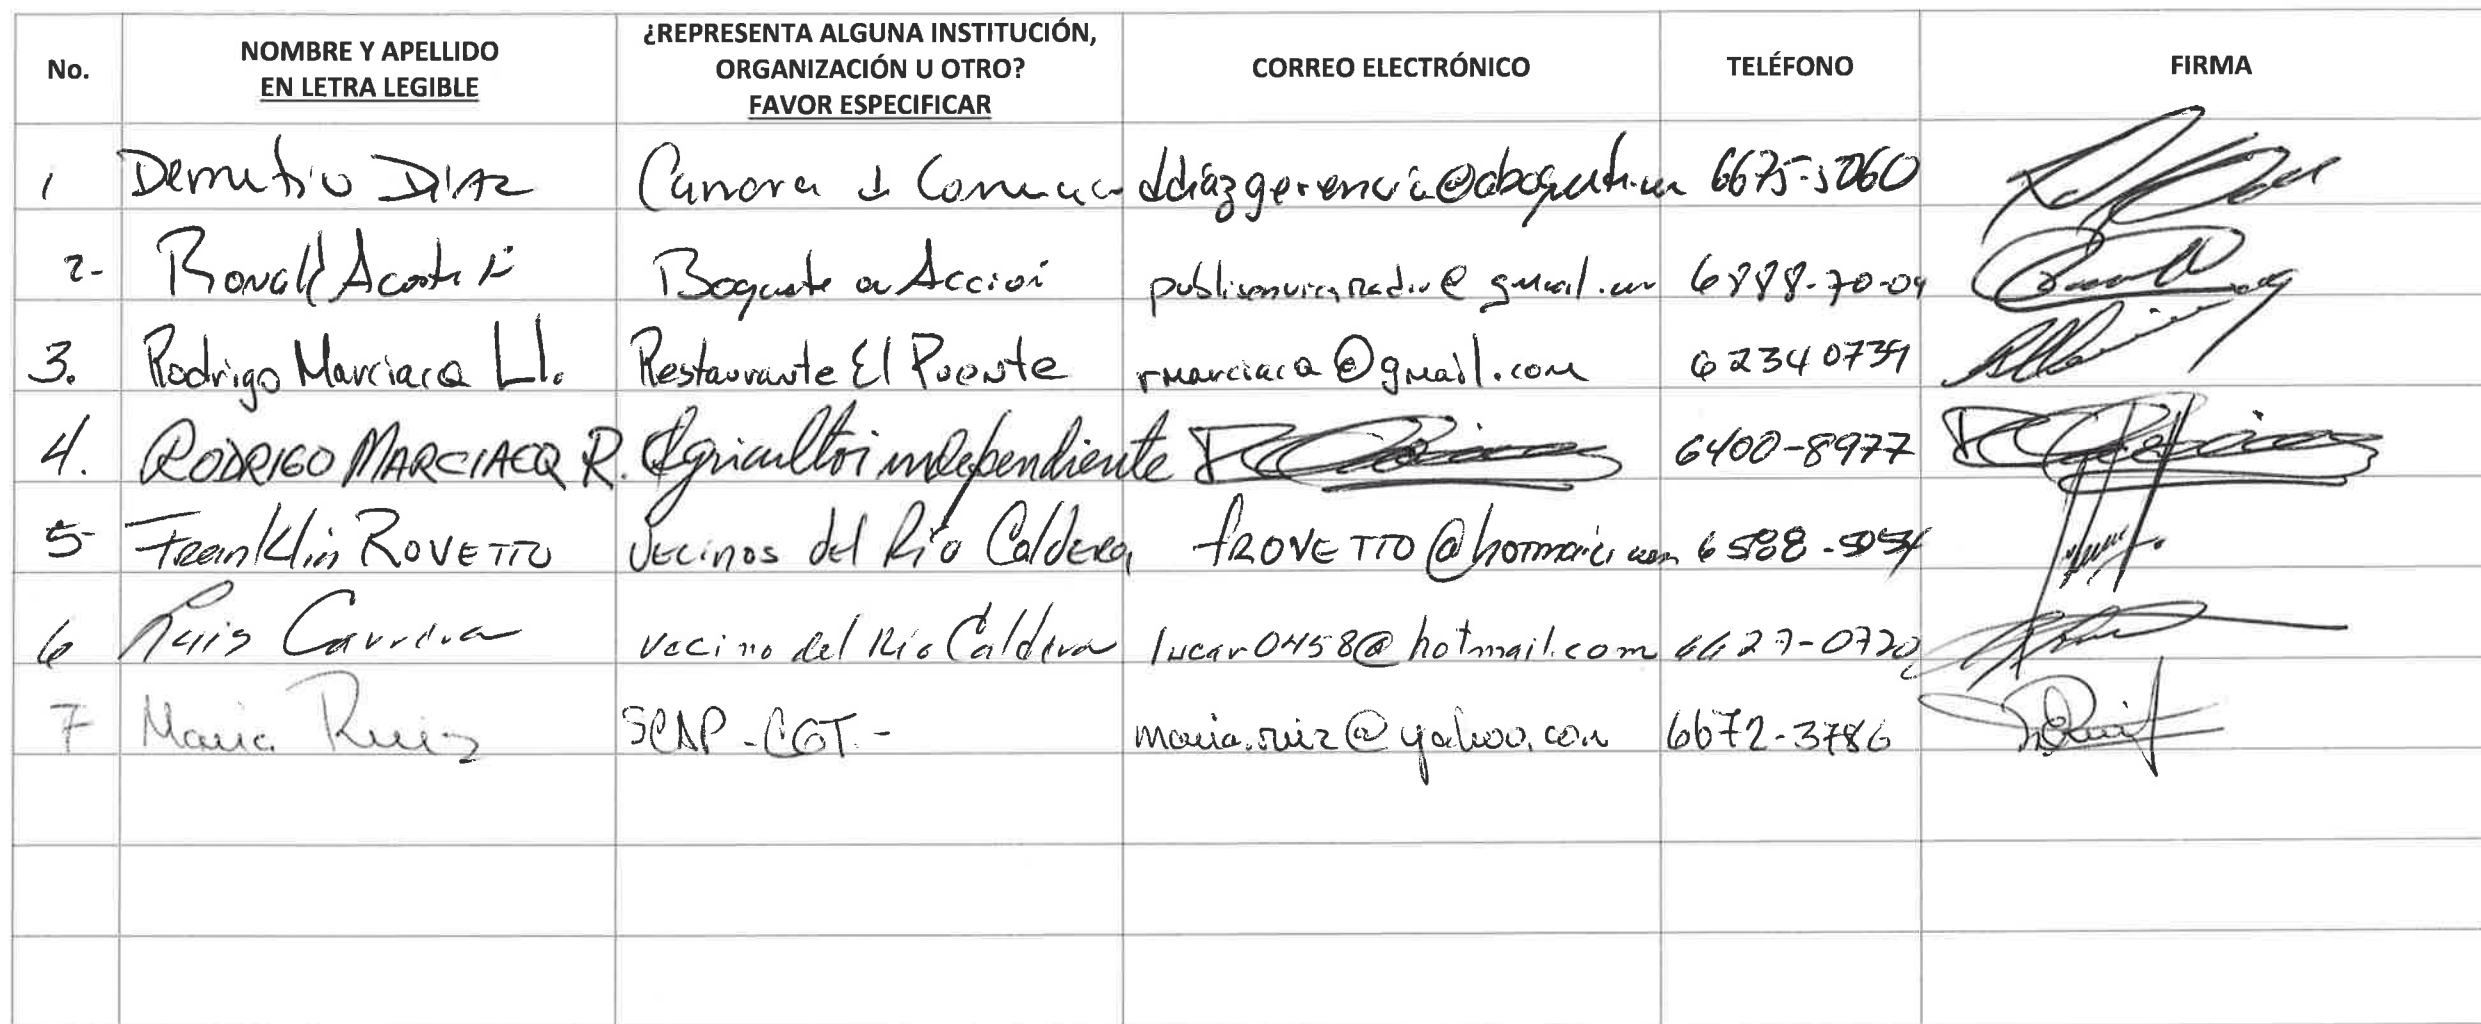 No. NOMBRE Y APELLIDO EN LETRA LEGIBLE ¿REPRESENTA ALGUNA INSTITUCIÓN, ORGANIZACIÓN U OTRO? FAVOR ESPECIFICAR CORREO ELECTRÓNICO TELÉFONO FIRMA
1 Demetrio DIAZ Camara d 6675-5060
2- Ronald Acosta Boquete en Acción 6888-70-09
3. Rodrigo Marciacq Ll. Restaurante El Puente rmarciacq@gmail.com 62340739
4. RODRIGO MARCIACQ R. Agricultor independiente 6400-8977
5- Franklin ROVETTO Vecinos del Río Caldera fROVETTO@hotmail.com
6 Luis Carrera vecino del Río Caldera lucar0458@hotmail.com 6627-0720
7 Maria Ruiz SCAP-CGT.- maria.ruiz@yahoo.com 6672-3786